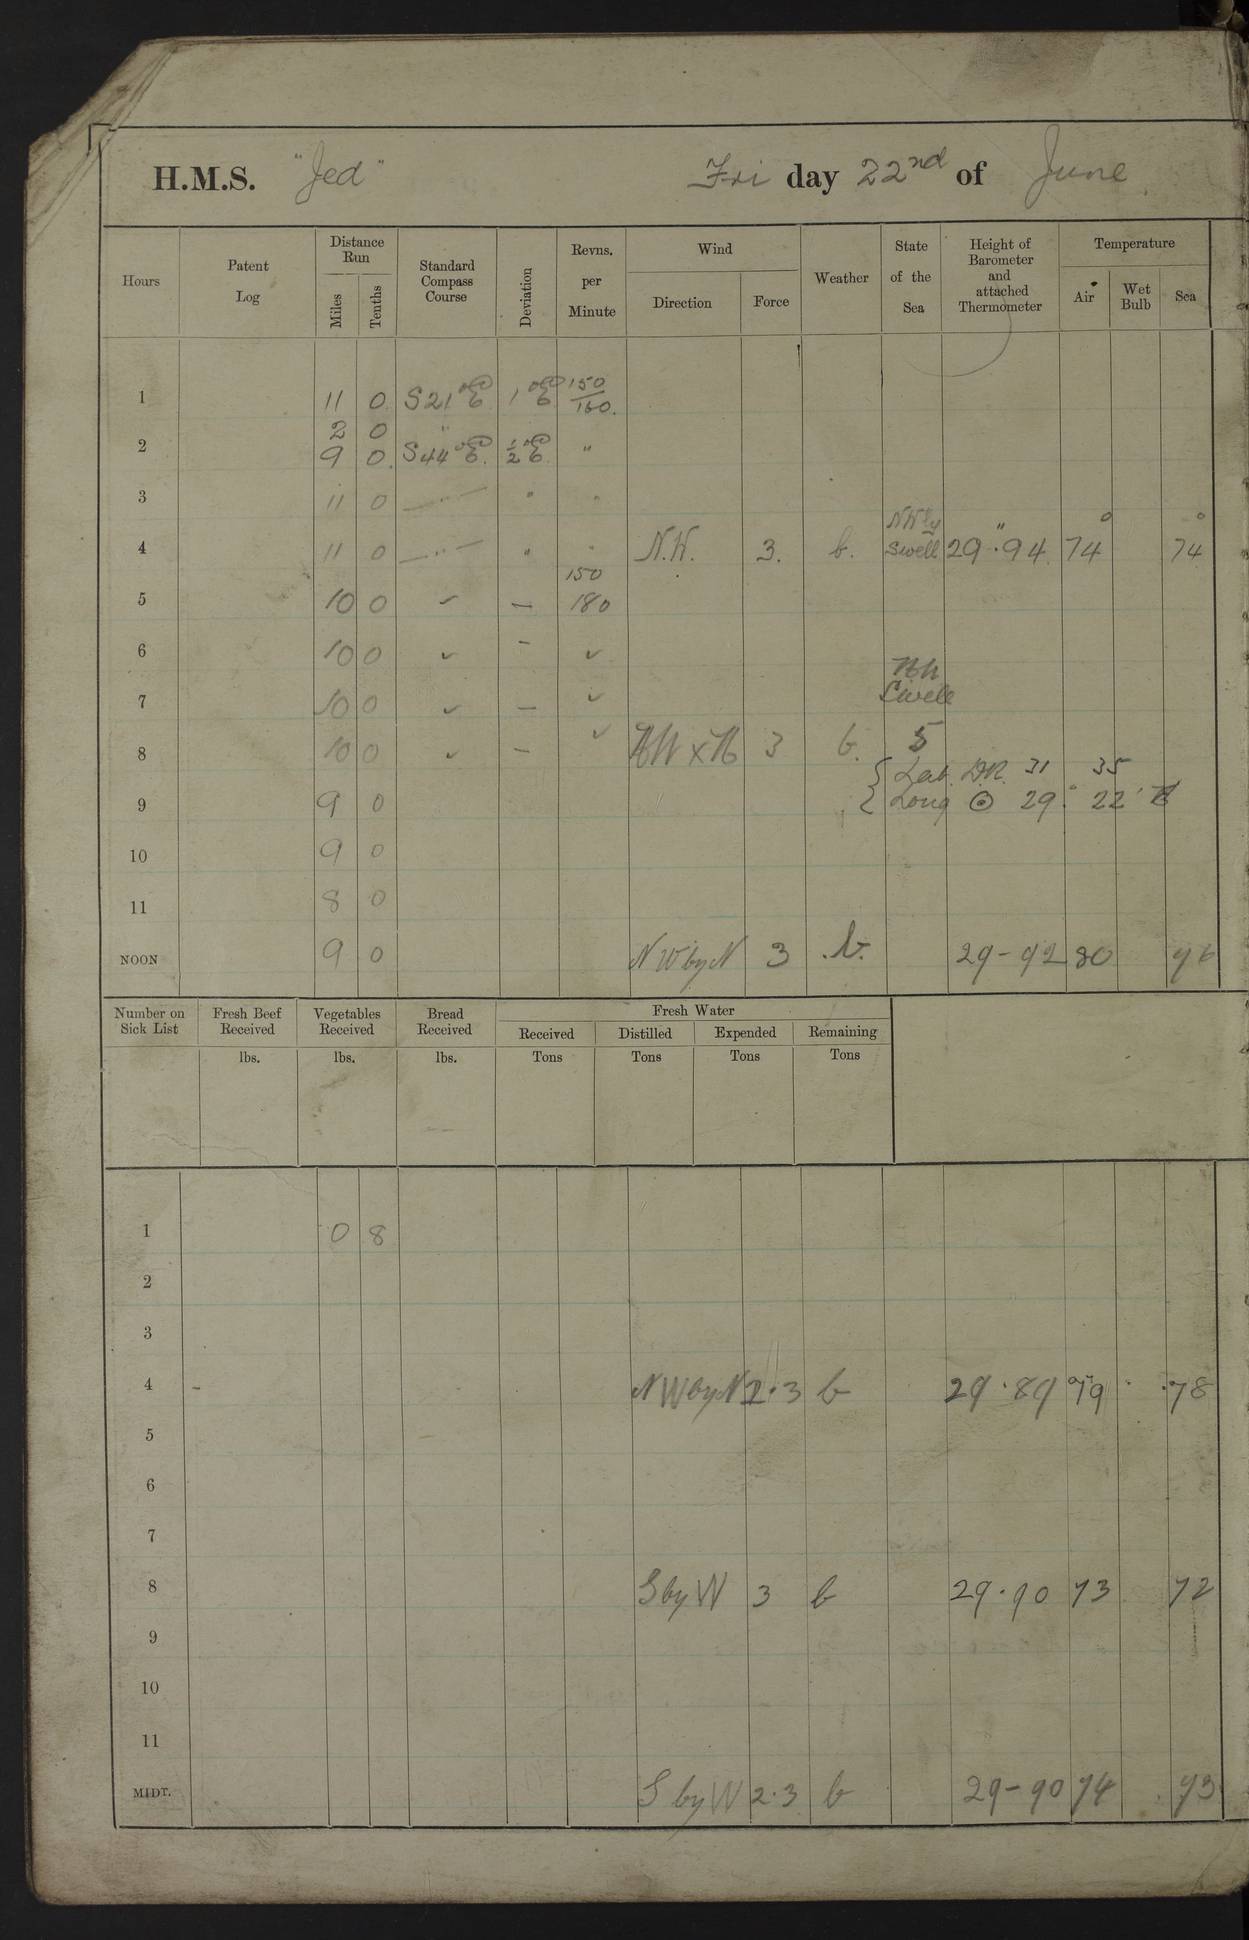 H.M.S. "Jed" Fri day 22nd of June
Hours Patent Log Distance Run Miles Tenths Standard Compass Course Deviation Revns. per Minute Wind Direction Force Weather State of the Sea Height of Barometer and attached Thermometer Temperature Air Wet Bulb Sea
1 11 0 S21°E 1°E 150/160
2 0 "
2 9 0 S44°E ½°E "
3 11 0 — " — " "
NWly
4 11 0 — " — " " N.W. 3. b. Swell 29".94 74° 74°
150
5 10 0 ✓ — 180
6 10 0 ✓ — ✓
NW
7 10 0 ✓ — ✓ Swell
8 10 0 ✓ — ✓ NW x N 3 b. 5
{ Lat. DR. 31 35
9 9 0 Long ⊙ 29° 22' E
10 9 0
11 8 0
NOON 9 0 NW by N 3 b. 29-92 80 76
Number on Sick List Fresh Beef Received Vegetables Received Bread Received Fresh Water
Received Distilled Expended Remaining
lbs. lbs. lbs. Tons Tons Tons Tons
1 0 8
2
3
4 - NW by N 2.3 b 29.89 79 78
5
6
7
8 S by W 3 b 29.90 73 72
9
10
11
MIDT. S by W 2.3 b 29-90 74 73